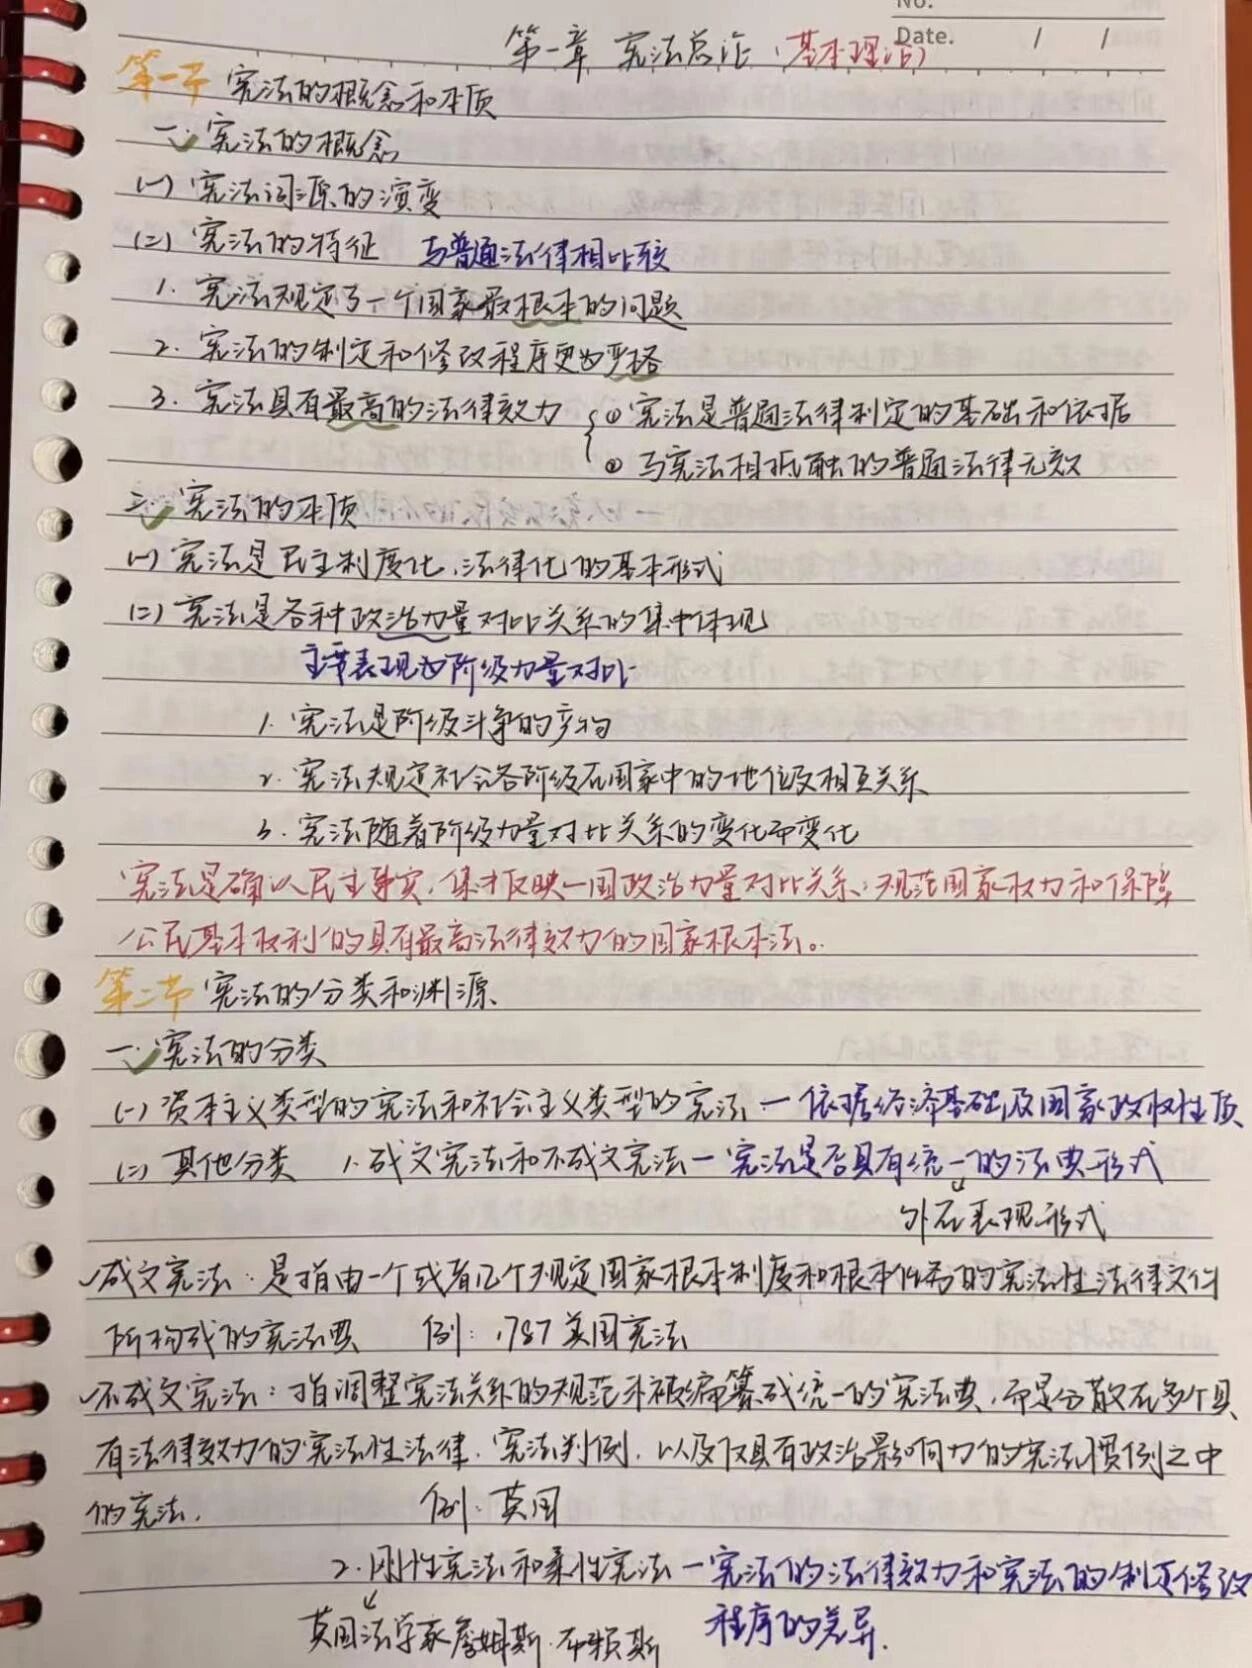 No.
Date. / /
第一章 宪法总论（基本理论）
第一节 宪法的概念和本质
一、宪法的概念
(一) 宪法词源的演变
(二) 宪法的特征 与普通法律相比较
1. 宪法规定了一个国家最根本的问题
2. 宪法的制定和修改程序更为严格
3. 宪法具有最高的法律效力 { ① 宪法是普通法律制定的基础和依据
② 与宪法相抵触的普通法律无效
二、宪法的本质
(一) 宪法是民主制度化、法律化的基本形式
(二) 宪法是各种政治力量对比关系的集中体现
主要表现为阶级力量对比
1. 宪法是阶级斗争的产物
2. 宪法规定社会各阶级在国家中的地位及相互关系
3. 宪法随着阶级力量对比关系的变化而变化
宪法是确认民主事实，集中反映一国政治力量对比关系，规范国家权力和保障
公民基本权利的具有最高法律效力的国家根本法。
第二节 宪法的分类和渊源
一、宪法的分类
(一) 资本主义类型的宪法和社会主义类型的宪法 — 依据经济基础及国家政权性质
(二) 其他分类 1. 成文宪法和不成文宪法 — 宪法是否具有统一的法典形式
外在表现形式
✓成文宪法：是指由一个或者几个规定国家根本制度和根本任务的宪法性法律文件
所构成的宪法典 例：1787 美国宪法
✓不成文宪法：指调整宪法关系的规范未被编纂成统一的宪法典，而是分散在多个具
有法律效力的宪法性法律、宪法判例，以及仅具有政治影响力的宪法惯例之中
的宪法. 例：英国
2. 刚性宪法和柔性宪法 — 宪法的法律效力和宪法的制定修改
英国法学家詹姆斯·布赖斯 程序的差异.